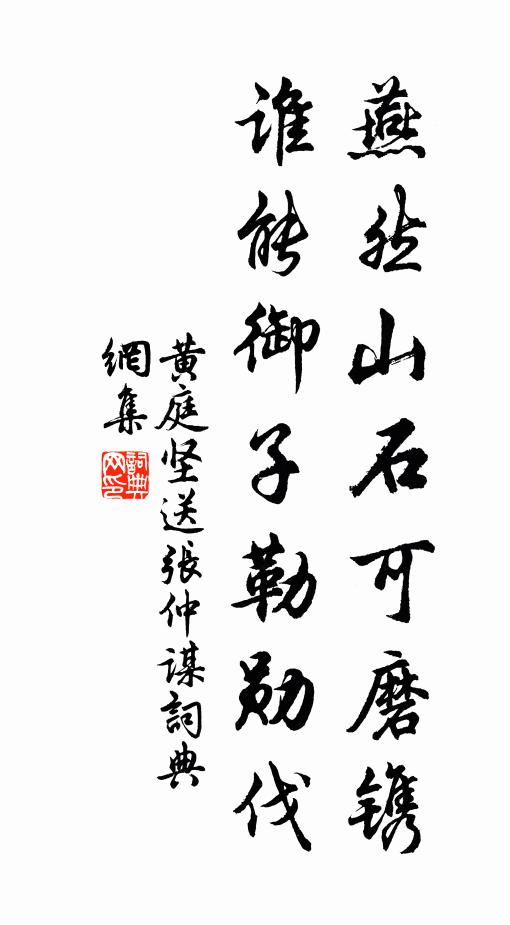 燕然山石可磨镌
谁能御子勒勋伐
黄庭坚送張仲谋詞典
網集
詞典
网印